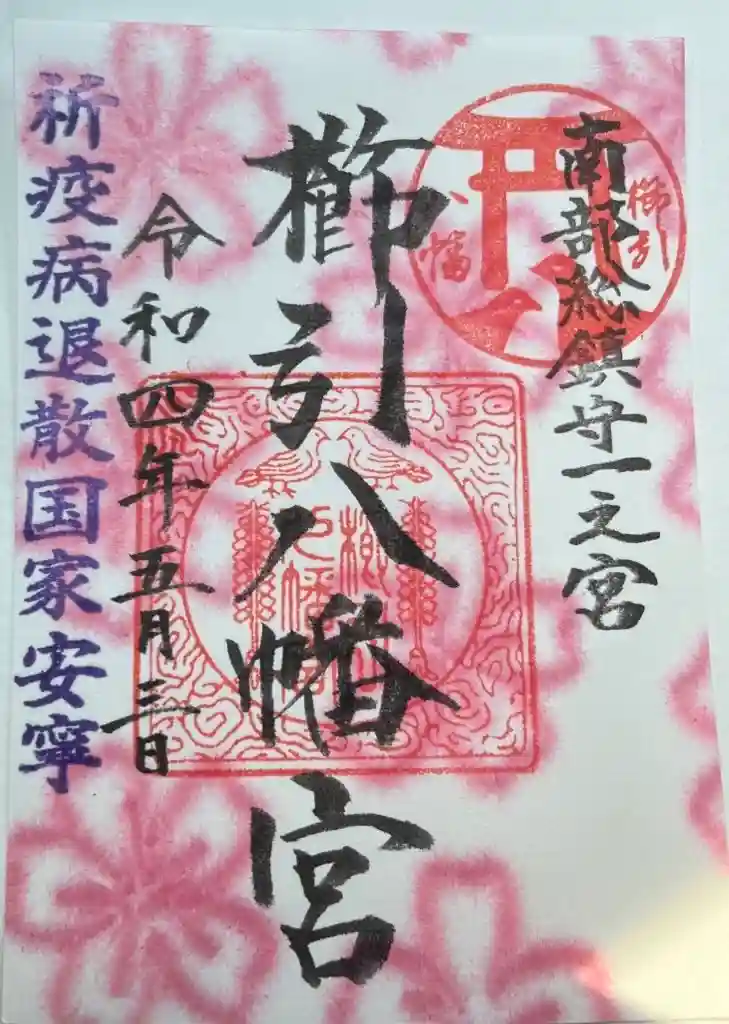 南部総鎮守一之宮
櫛引
八幡
櫛引八幡宮
令和四年五月三日
祈疫病退散国家安寧